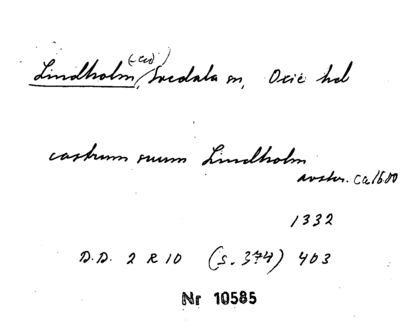 (-ed)
Lindholm, Svedala sn, Oxie hd
castrum suum Lindholm
avskr. ca 1600
1332
D.D. 2 R 10 (s. 374) 403
Nr 10585